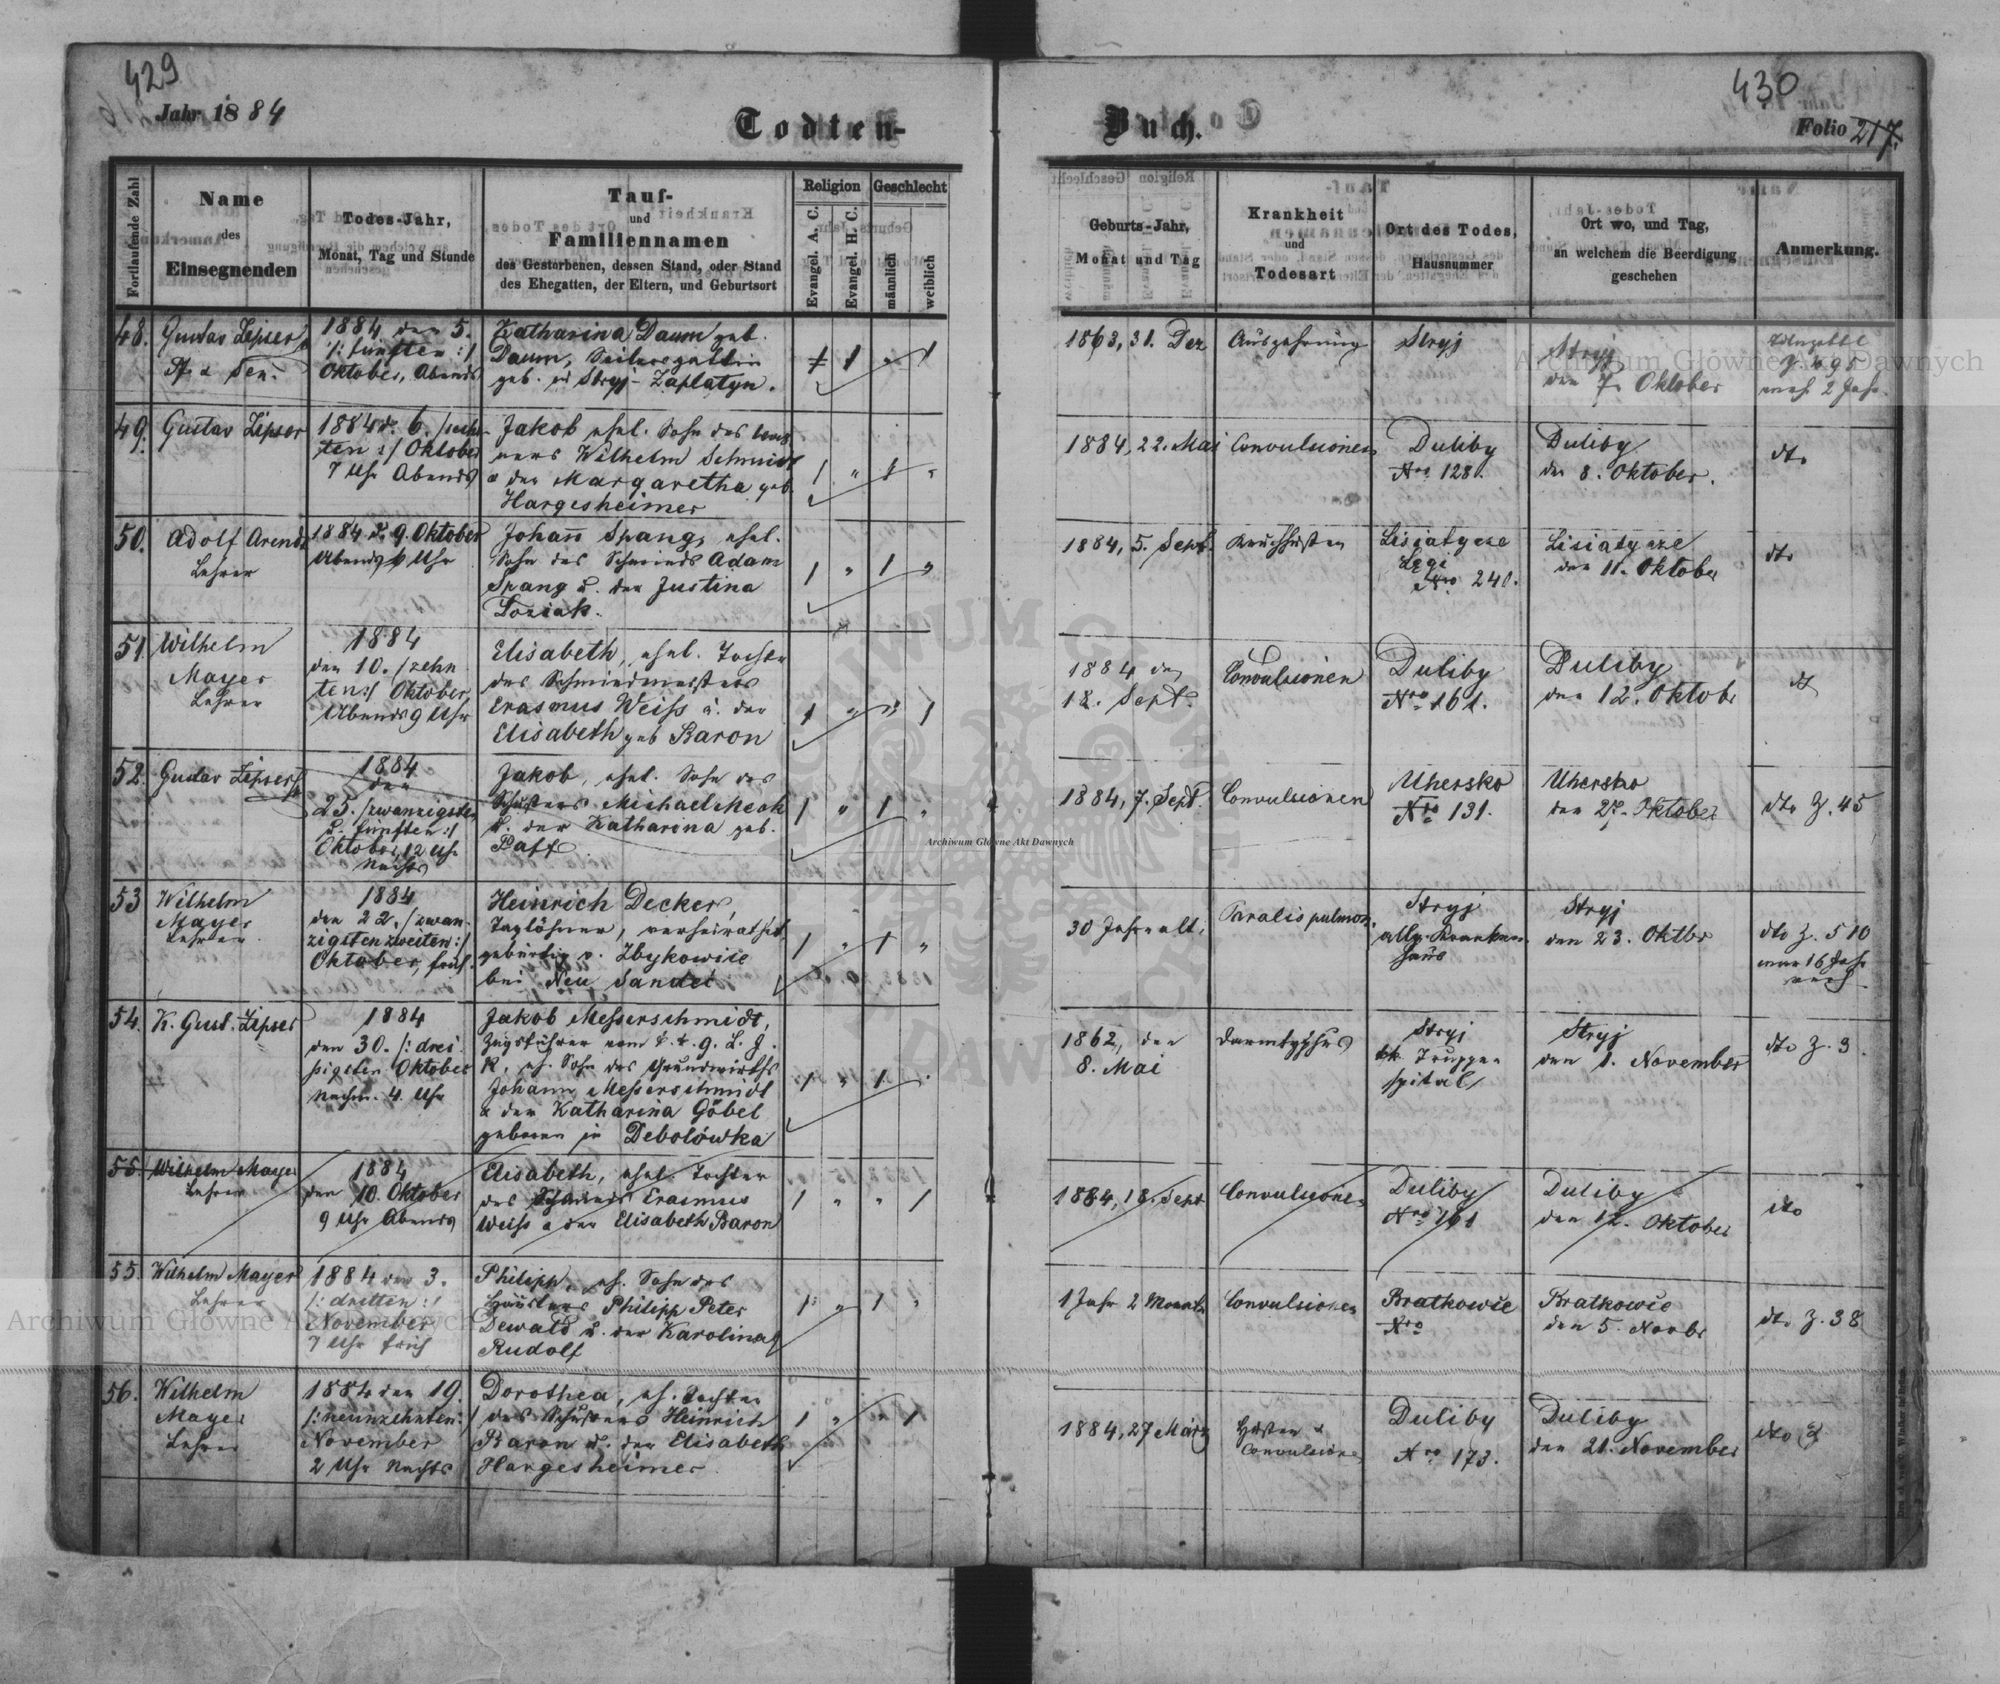 429
Jahr 1884
Todten-
Fortlaufende Zahl
Name
des
Einsegnenden
Todes-Jahr,
Monat, Tag und Stunde
Tauf-
und
Familiennamen
des Gestorbenen, dessen Stand, oder Stand
des Ehegatten, der Eltern, und Geburtsort
Religion
Evangel. A. C.
Evangel. H. C.
Geschlecht
männlich
weiblich
48.
Gustav Zipser
Pf. & Sen.
1884 den 5.
/: fünften :/
Oktober, Abends
Katharina Daum geb.
Daum, Seilersgattin
geb. in Stryj-Zaplatyn.
49.
Gustav Zipser
1884 d. 6. /:sechs-
ten :/ Oktober
7 Uhr Abends
Jakob ehel. Sohn des
Wilhelm Schmidt
& der Margaretha geb.
Hargesheimer
1 " 1 "
50.
Adolf Arendt
Lehrer
1884 d. 9. Oktober
Abends Uhr
Johann Spang, ehel.
Sohn des Schmieds Adam
Spang u. der Justina
1 " 1 "
51.
Wilhelm
Mayer
Lehrer
1884
den 10. /:zehn
ten:/ Oktober,
Abends 9 Uhr
Elisabeth, ehel. Tochter
des Schmiedmeisters
Erasmus Weiss u. der
Elisabeth geb Baron
1 " " 1
52.
Gustav Zipser
1884
den
25. /:zwanzigsten
u. fünften :/
Oktober, 12 Uhr
Nachts
Jakob, ehel. Sohn des
Schusters Michael Mech
u. der Katharina geb.
Paff
1 " 1 "
53
Wilhelm
Mayer
Lehrer
1884
den 22. /:zwan-
zigsten zweiten:/
Oktober, früh
Heinrich Decker,
Taglöhner, verheirathet
gebürtig v. Zbykowice
bei Neu Sandec
1 " 1 "
54.
K. Gust. Zipser
1884
den 30. /: drei
ssigsten Oktober
Nachm. 4 Uhr
Jakob Messerschmidt,
Zugsführer vom k. k. 9. L. J.
R., eh. Sohn des Grundwirths
Johann Messerschmidt
& der Katharina Göbel
geboren in Debolówka
1 " 1 "
55.
Wilhelm Mayer
Lehrer
1884
den 10. Oktober
9 Uhr Abends
Elisabeth, ehel. Tochter
des Schmieds Erasmus
Weiss & der Elisabeth Baron
1 " " 1
55.
Wilhelm Mayer
Lehrer
1884 den 3.
/: dritten :/
November
7 Uhr früh
Philipp, eh. Sohn des
Häuslers Philipp Peter
Dewald u. der Karolina
Rudolf
1 " 1 "
56.
Wilhelm
Mayer
Lehrer
1884 den 19.
/: neunzehnten :/
November
2 Uhr Nachts
Dorothea, eh. Tochter
des Schusters Heinrich
Baron u. der Elisabeth
Hargesheimer
1 " " 1
430
Buch.
Folio 217.
Geburts-Jahr,
Monat und Tag
Krankheit
und
Todesart
Ort des Todes,
Hausnummer
Ort wo, und Tag,
an welchem die Beerdigung
geschehen
Anmerkung.
1863, 31. Dez
Auszehrung
Stryj
Stryj
den 7. Oktober
1884, 22. Mai
Convulsionen
Duliby
Nro. 128.
Duliby
den 8. Oktober.
dto
1884, 5. Sept.
Keuchhusten
Lisiatycze
Łęgi
Nro 240.
Lisiatycze
den 11. Oktober
dto
1884 den
18. Sept.
Convulsionen
Duliby
Nro 161.
Duliby
den 12. Oktobr
dto
1884, 7. Sept.
Convulsionen
Uhersko
Nro 131.
Uhersko
den 27. Oktober
dto Z. 45
30 Jahre alt.
Paralis pulmon.
Stryj
allg. Kranken-
haus
Stryj
den 23. Oktbr
dto Z. 510
1862, den
8. Mai
Darmtyphus
Stryj
kk. Truppen
spital
Stryj
den 1. November
dto Z. 3
1884, 18. Sept
Convulsionen
Duliby
Nro 161
Duliby
den 12. Oktober
dto
1 Jahr 2 Monate
Convulsionen
Bratkowce
Nro
Bratkowce
den 5. Novbr
dto Z. 38
1884, 27 März
Husten &
Convulsionen
Duliby
Nro. 173.
Duliby
den 21. November
dto
Archiwum Główne Akt Dawnych
Archiwum Główne Akt Dawnych
Archiwum Główne Akt Dawnych
ARCHIWUM GŁÓWNE AKT DAWNYCH